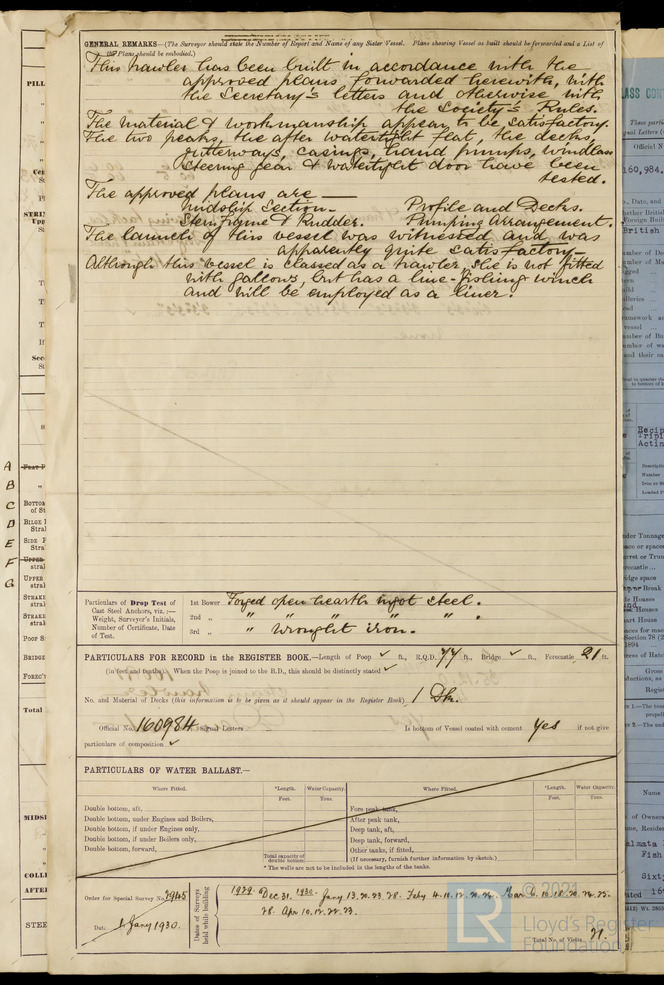 GENERAL REMARKS—(The Surveyor should state the Number of Report and Name of any Sister Vessel. Plans showing Vessel as built should be forwarded and a List of
Plans should be embodied.)
This trawler has been built in accordance with the
approved plans forwarded herewith, with
the Secretary's letters and otherwise with
the Society's Rules.
The material & workmanship appear to be satisfactory.
The two peaks, the after watertight flat, the decks,
gutterways, casings, hand pumps, windlass
steering gear & watertight door have been
tested.
The approved plans are
Midship Section. Profile and Decks.
Stern Frame & Rudder. Pumping Arrangement.
The launch of this vessel was witnessed and was
apparently quite satisfactory.
Although this vessel is classed as a trawler she is not fitted
with gallows, but has a line-fishing winch
and will be employed as a liner.
Particulars of Drop Test of
Cast Steel Anchors, viz.:—
Weight, Surveyor's Initials,
Number of Certificate, Date
of Test.
1st Bower Forged open hearth ingot steel.
2nd „ " " " " " .
3rd „ " Wrought iron.
PARTICULARS FOR RECORD in the REGISTER BOOK.—Length of Poop ✓ ft., R.Q.D. 77 ft., Bridge ✓ ft., Forecastle 21 ft.
(in feet and tenths). When the Poop is joined to the B.D., this should be distinctly stated ✓
No. and Material of Decks (this information is to be given as it should appear in the Register Book) 1 Dk.
Official No. 160984 Signal Letters Is bottom of Vessel coated with cement Yes if not give
particulars of composition ✓
PARTICULARS OF WATER BALLAST.—
Where Fitted. *Length. Water Capacity. Where Fitted. *Length. Water Capacity.
Feet. Tons. Feet. Tons.
Double bottom, aft, Fore peak tank,
Double bottom, under Engines and Boilers, After peak tank,
Double bottom, if under Engines only, Deep tank, aft,
Double bottom, if under Boilers only, Deep tank, forward,
Double bottom, forward, Other tanks, if fitted,
Total capacity of double bottom (If necessary, furnish further information by sketch.)
* The wells are not to be included in the lengths of the tanks.
Order for Special Survey No. 2945
Date 1 Jany 1930.
Dates of Surveys held while building
1929. Dec 31. 1930. Jany. 13. 20. 23. 28. Feby 4. 11.
28. Apr 10.
Total No. of Visits 21.
© 2021
LR
Lloyd's Register
Foundation
PILL
A
B
C
D
E
F
G
BRIDGE
Total
MIDS
AFTER
STEE
160,984.
British